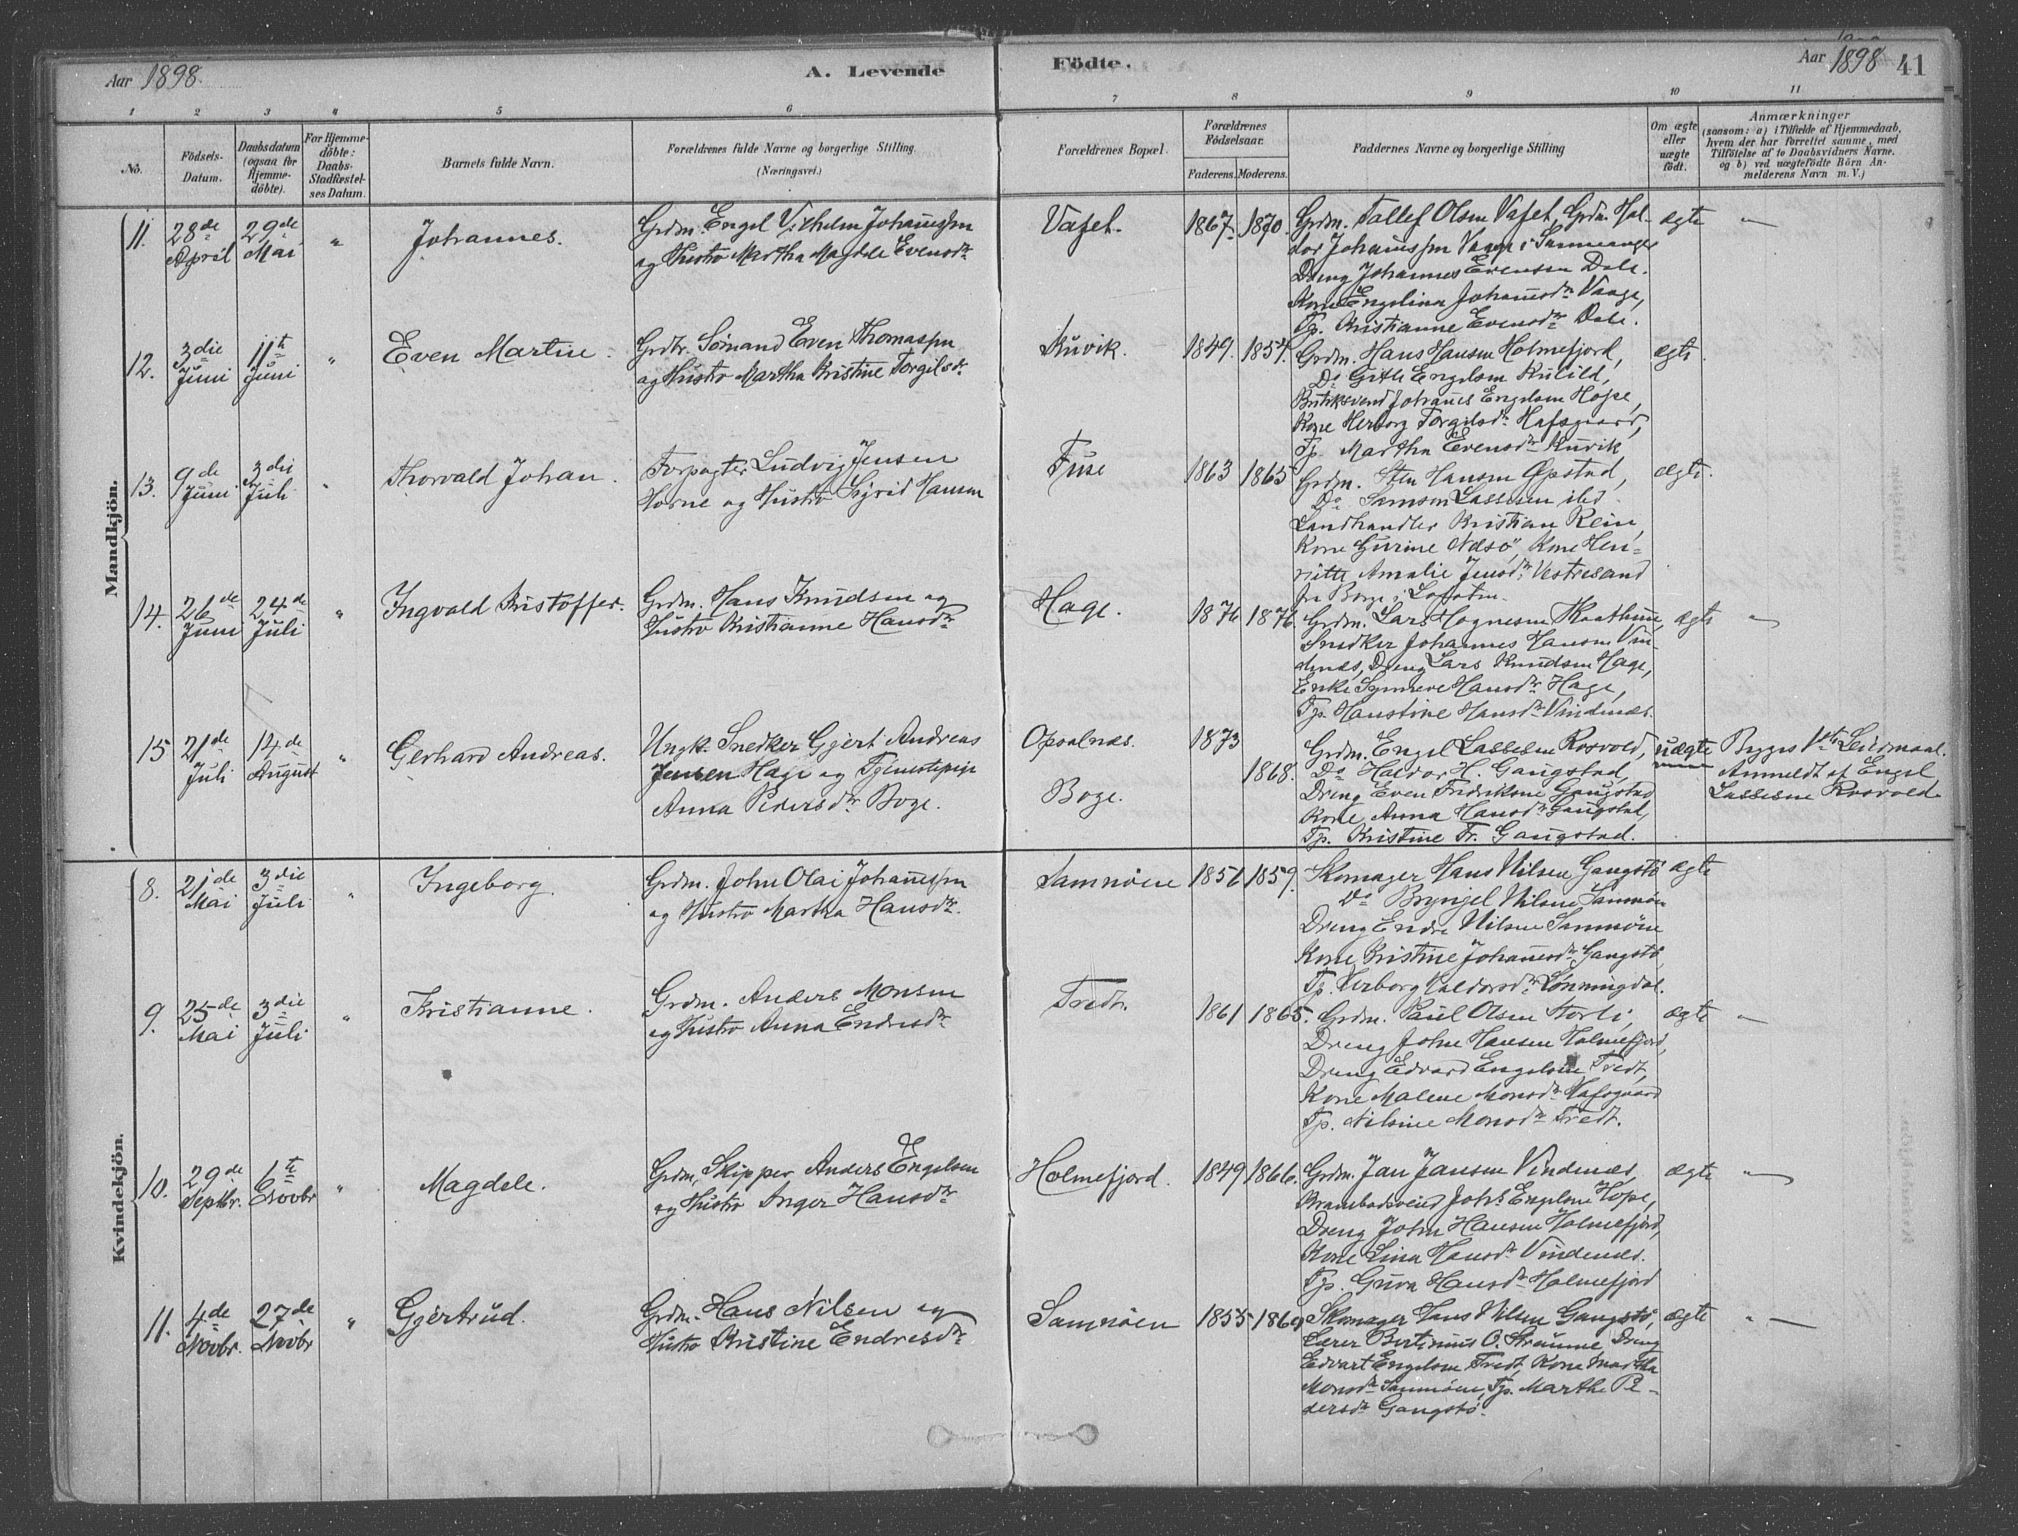 Aar 1898.
A. Levende
Födte.
Aar 1898
41
1 2 3 4 5 6 7 8 9 10 11
No.
Födsels-
Datum.
Daabsdatum
(ogsaa for
Hjemme-
döbte).
For Hjemme-
döbte:
Daabs-
Stadfæstel-
ses Datum.
Barnets fulde Navn.
Forældrenes fulde Navne og borgerlige Stilling
(Næringsvei.)
Forældrenes Bopæl.
Forældrenes
Födselsaar.
Faderens. Moderens.
Faddernes Navne og borgerlige Stilling
Om ægte
eller
uægte
födt.
Anmærkninger
(saasom: a) i Tilfælde af Hjemmedaab,
hvem der har forrettet samme, med
Tilföielse af to Daabsvidners Navne.
og b) ved uægtefödte Börn An-
melderens Navn m. V.)
Mandkjön.
11.
28de
April
29de
Mai
"
Johannes.
Grdm. Engel Vilhelm Johannessen
og Hustro Martha Magdele Evensdr.
1867. 1870.
Grdm. Tollef Olsen
Grdm. Hal-
dor Johannessen Vaage i Samnanger
Dreng Johannes Evensen Dale.
Kone Engelina Johannesdr. Vaage,
Tp. Kristianne Evensdr. Dale.
ægte
12.
3die
Juni
11te
Juni
"
Even Martin.
Grdbr. Sømand Even Thomassen
og Hustro Martha Kristine Torgilsdr.
1849.
Grdm. Hans Hansen Holmefjord,
Do Gitle Engelsen
Butiksvend Johannes Engelsen Hope,
Kone Herborg Torgilsdr. Hafsgaard,
Tp. Martha Evensdr.
ægte
13.
9de
Juni
3die
Juli
"
Thorvald Johan.
Forpagter Ludvig Jensen
Horne og Hustro Sigrid Hansen
Fuse
1863 1865
Grdm. Sten Hansen Opstad,
Do Samson Lassesen ibd.
Landhandler Kristian Rein,
Kone Gurine Næsø, Kone Hen-
riette Amalie Jensdr. Vestresand
fra Borge i Lofoten.
ægte.
14.
26de
Juni
24de
Juli
"
Ingvald Kristoffer.
Grdm. Hans Knudsen og
Hustro Kristianne Hansdr.
Hage.
1876 1876.
Grdm. Lars Hognesen
Snedker Johannes Hansen Vin-
denes, Dreng Lars Knudsen Hage,
Enke Synneve Hansdr. Hage,
Tp. Hanstine Hansdr. Vindenæs.
ægte
15
21de
Juli
14de
August
"
Gerhard Andreas.
Ungk. Snedker Gjert Andreas
Jensen Hage og Tjenestepige
Anna Pedersdr. Boge.
Opsalnæs.
Boge.
1873
1868.
Grdm. Engel Lassesen Rosvold,
Do Haldor H. Gaugstad,
Dreng Even Fredriksen Gaugstad
Kone Anna Hansdr. Gaugstad,
Tp. Kristine Fr. Gaugstad.
uægte
Begges 1ste Leiermaal.
Anmeldt af Engel
Lassesen Rosvold.
Kvindekjön.
8.
21de
Mai
3die
Juli
"
Ingeborg.
Grdm. John Olai Johannessen
og Hustro Martha Hansdr.
Samnøen
1851 1859.
Skomager Hans Nilsen Gangstø
Do Brynjel Nilsen Samnøen
Dreng Endre Nilsen Samnøen
Kone Kristine Johannesdr. Gangstø,
Tp. Herborg Haldorsdr. Lønningdal.
ægte
9.
25de
Mai
3die
Juli
"
Kristianne.
Grdm. Anders Monsen
og Hustro Anna Endresdr.
1861 1865.
Grdm. Paul Olsen Storli,
Dreng John Hansen Holmefjord,
Dreng Edvard Engelsen Tredt,
Kone Malene Monsdr. Hafsgaard
Tp. Nilsine Monsdr. Tredt.
ægte
10.
29de
Septbr.
6te
Novbr
"
Magdele.
Grdm. Skipper Anders Engelsen
og Hustro Inger Hansdr.
Holmefjord.
1849 1866.
Grdm. Jan Jansen Vindenæs,
Krambodsvend Johs Engelsen Hope,
Dreng John Hansen Holmefjord,
Kone Lina Hansdr. Vindenæs.
Tp. Guro Hansdr. Holmefjord
ægte
11.
4de
Novbr.
27de
Novbr
"
Gjertrud.
Grdm. Hans Nilsen og
Hustro Kristine Endresdr.
Samnøen
1855 1860
Skomager Hans Nilsen Gangstø,
Lærer Bertinius O. Straume, Dreng
Edvart Engelsen Tredt, Kone Martha
Monsdr. Samnøen, Tp. Marthe Pe-
dersdr. Gangstø.
ægte